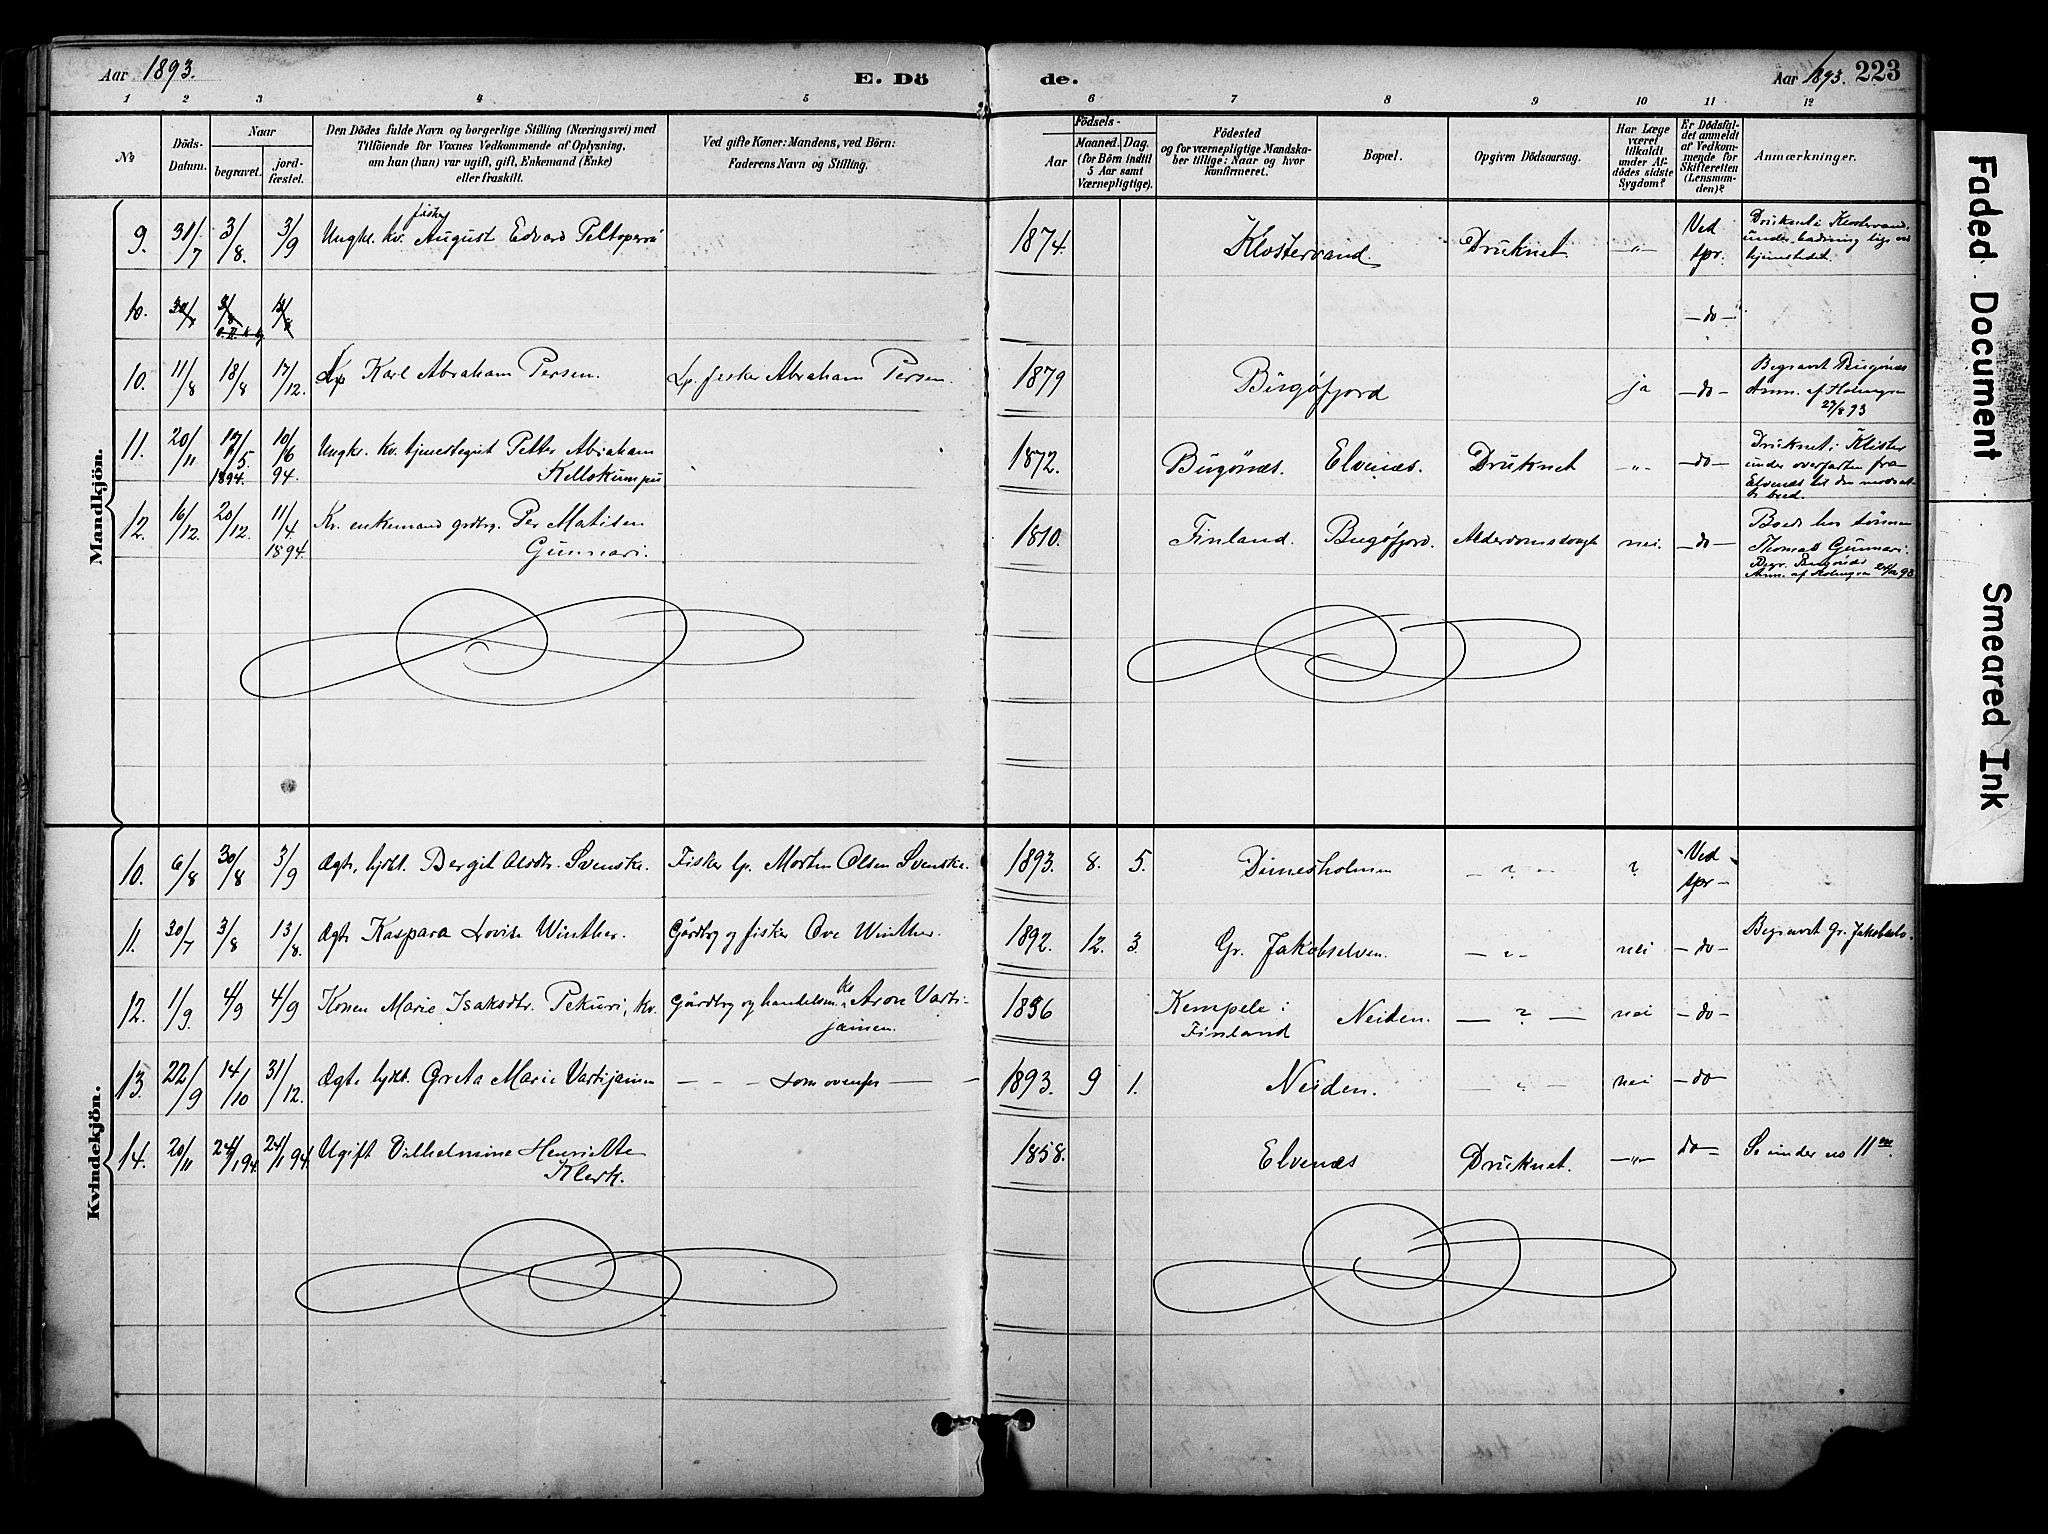 Aar 1893.
E. Dö
de.
Aar 1893. 223
1 2 3 4 5 6 7 8 9 10 11 12
No
Döds-
Datum.
Naar
begravet.
jord-
fæstet.
Den Dödes fulde Navn og borgerlige Stilling (Næringsvei) med
Tilföiende för Voxnes Vedkommende af Oplysning,
om han (hun) var ugift, gift, Enkemand (Enke)
eller fraskilt.
Ved gifte Koner: Mandens, ved Börn:
Faderens Navn og Stilling.
Födsels-
Aar
Maaned. Dag.
(for Börn indtil
5 Aar samt
Værnepligtige).
Födested
og for værnepligtige Mandska-
ber tillige: Naar og hvor
konfirmeret.
Bopæl.
Opgiven Dödsaarsag.
Har Læge
været
tilkaldt
under Af-
dödes sidste
Sygdom?
Er Dödsfal-
det anmeldt
af Vedkom-
mende for
Skifteretten
(Lensman-
den)?
Anmærkninger.
Mandkjön.
fisker
9. 31/7 3/8. 3/9 Ungkr. kv. August Edvard 1874. Klostervand. Druknet — Ved spr. Druknet i Klostervand
under badning lige ved
hjemstedet.
10. 30/7 — do —
10. 11/8 18/8 17/12. Karl Abraham Persen. Lp. fisker Abraham Persen. 1879 Bugøfjord ja — do — Begravet Bugönæs
Anm. af Holmgren
29/8 93
11. 20/11 17/5 1894. 10/6 94. Ungkr. kv. Petter Abraham
Kellokumpu 1872. Bugönæs. Elvenæs. Druknet — do — Druknet i
under overfarten fra
Elvenæs til den
bred.
12. 16/12. 20/12. 11/4. 1894. Kv. enkemand grdbrg. Per Matisen
Gunnari. 1810. Finland. Bugøfjord. nei. — do — Boede hos sönnen
Thomas Gunnari.
Begr. Bugönæs
Anm. af Holmgren
Kvindekjön.
10. 6/8 30/8 3/9 Ægte, hjdbt. Bergit Olsdtr. Svenske. Fisker lp. Morten Olsen Svenske. 1893. 8. 5. — ? — ? Ved spr —
11. 30/7 3/8 13/8. Ægte Kaspara Lovise Winther. Gårdbrg og fisker Ove Winther. 1892. 12. 3. Gr. Jakobselven. — " — nei — do — Begravet Gr. Jakobselv.
12. 1/9. 4/9 4/9 Konen Marie Isaksdtr. Pekuri, kv. Gårdbrg og handelsm. kv. Aron Varti-
jainen. 1836 Kempele i
Finland Neiden. — ? — nei — do —
13. 22/9 14/10 31/12. Ægte hjdbt. Greta Marie Vartijainen — — som ovenfor — — 1893. 9 1. Neiden. — " — nei — do —
14. 20/11 24/1 94. 24/1 94. Ugift Vilhelmine Henriette
Klerk. 1858. Elvenæs Druknet. — " — do — Se under no 11
Faded Document
Smeared Ink